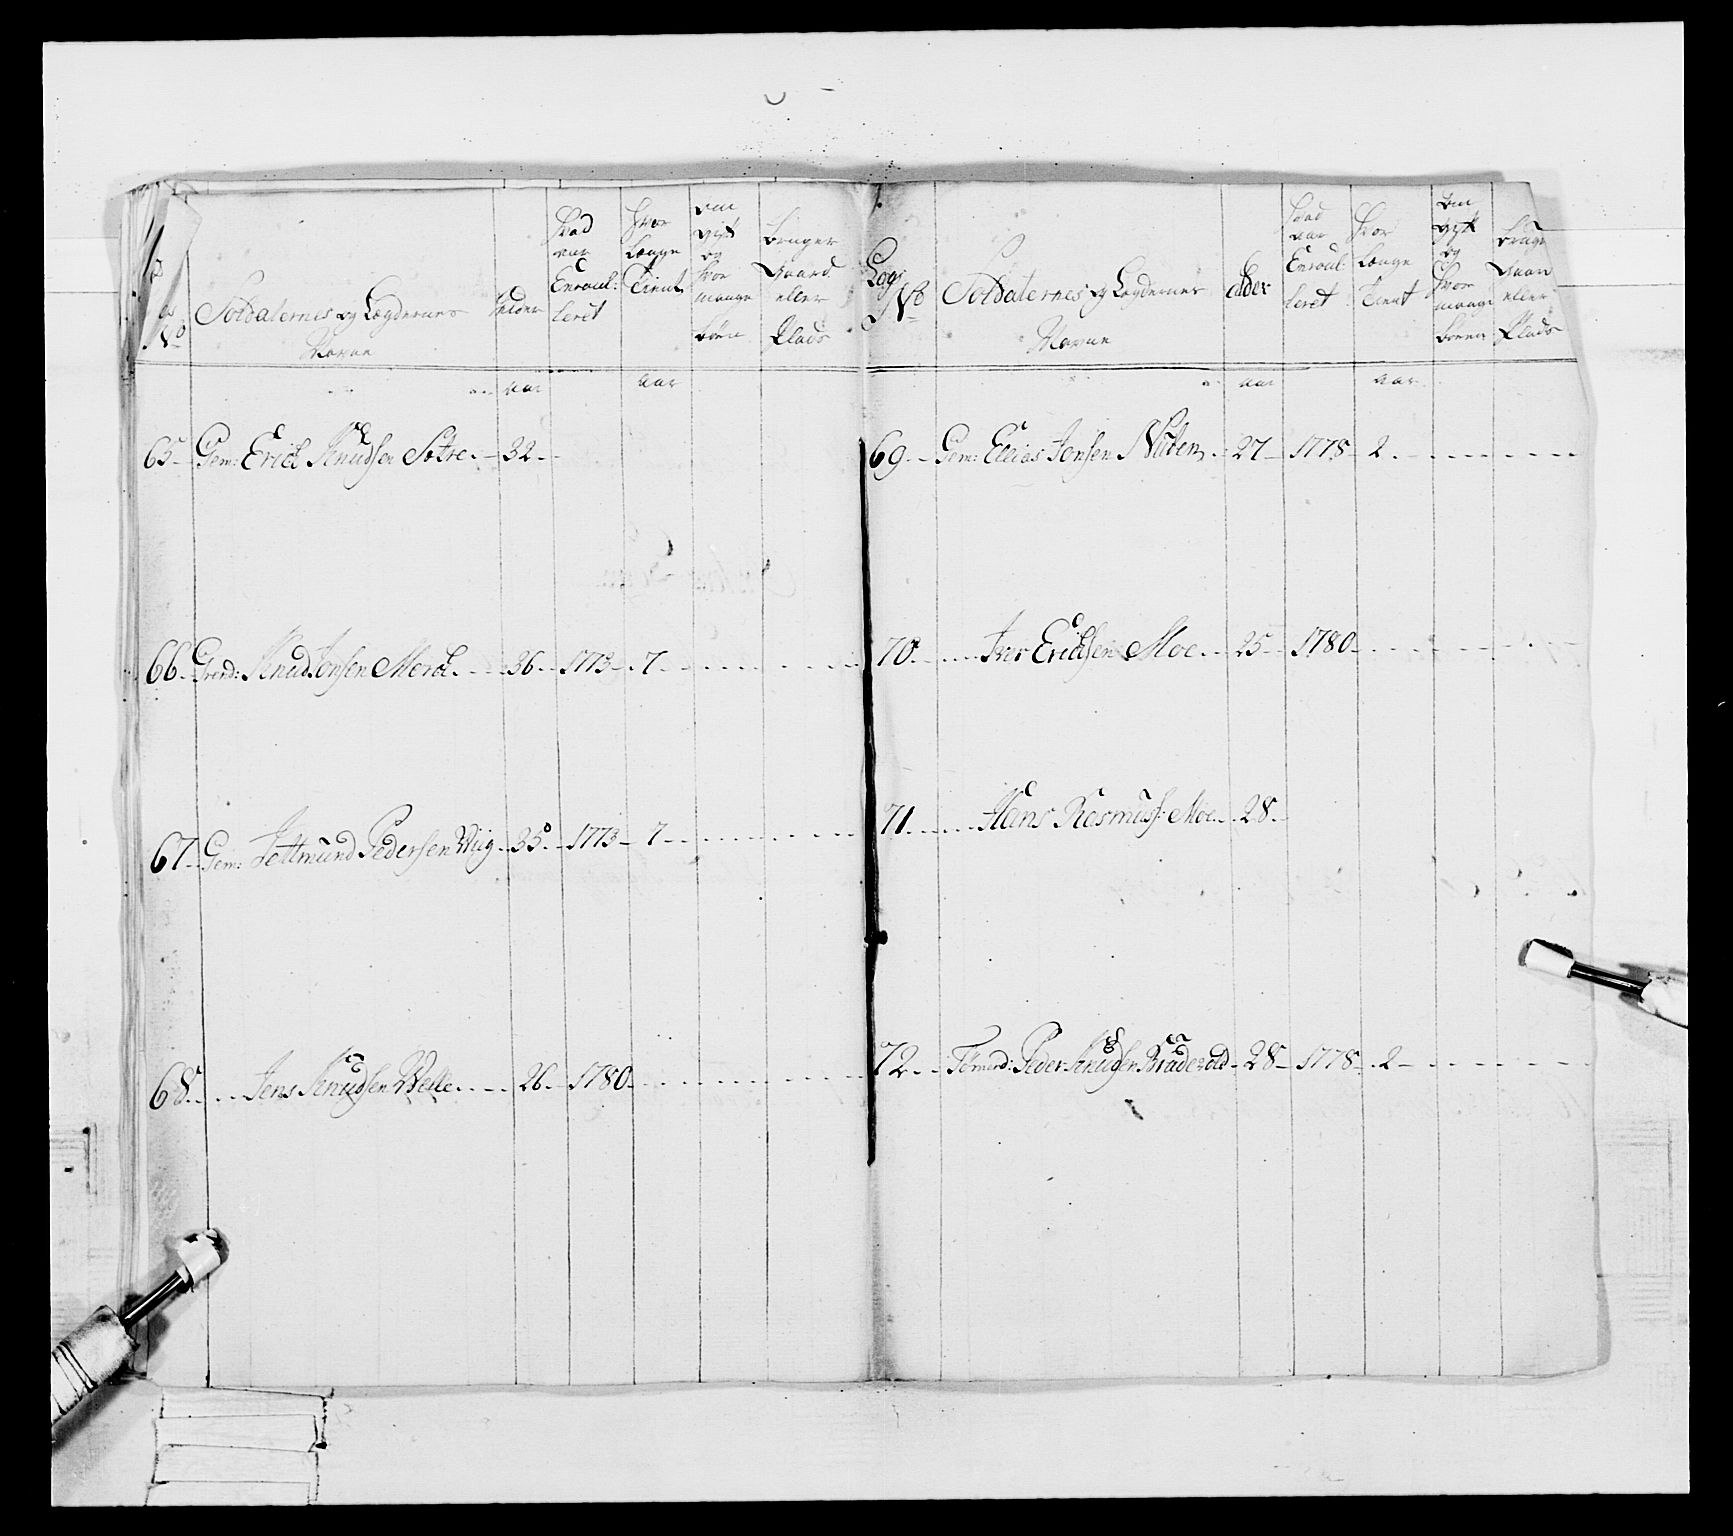 No Soldaternes og Lægdernes Navne Alder Hvad aar Enroulleret Hvor længe Tient Om gift og hvor mange Børn Bruger Gaard eller Plads
aar aar
65 Gem: Erich Knudsen Sætre 32
66 Grend: Knud Jonsen Merck 36 1773 7
67 Gem: Jettmund Pedersen Wiig 35 1773 7
68 Jens Knudsen Welle 26 1780
Læg No Soldaternes og Lægdernes Navne Alder Hvad aar Enroulleret Hvor længe Tient Om gift og Hvor mange Børn Bruger Gaard eller Plads
aar aar
69 Gem: Ellias Jensen 27 1778 2
70 Iver Erichsen Moe 25 1780
71 Hans Rasmus: Moe 28
72 Tømmerd: Peder Knudsen 28 1778 2